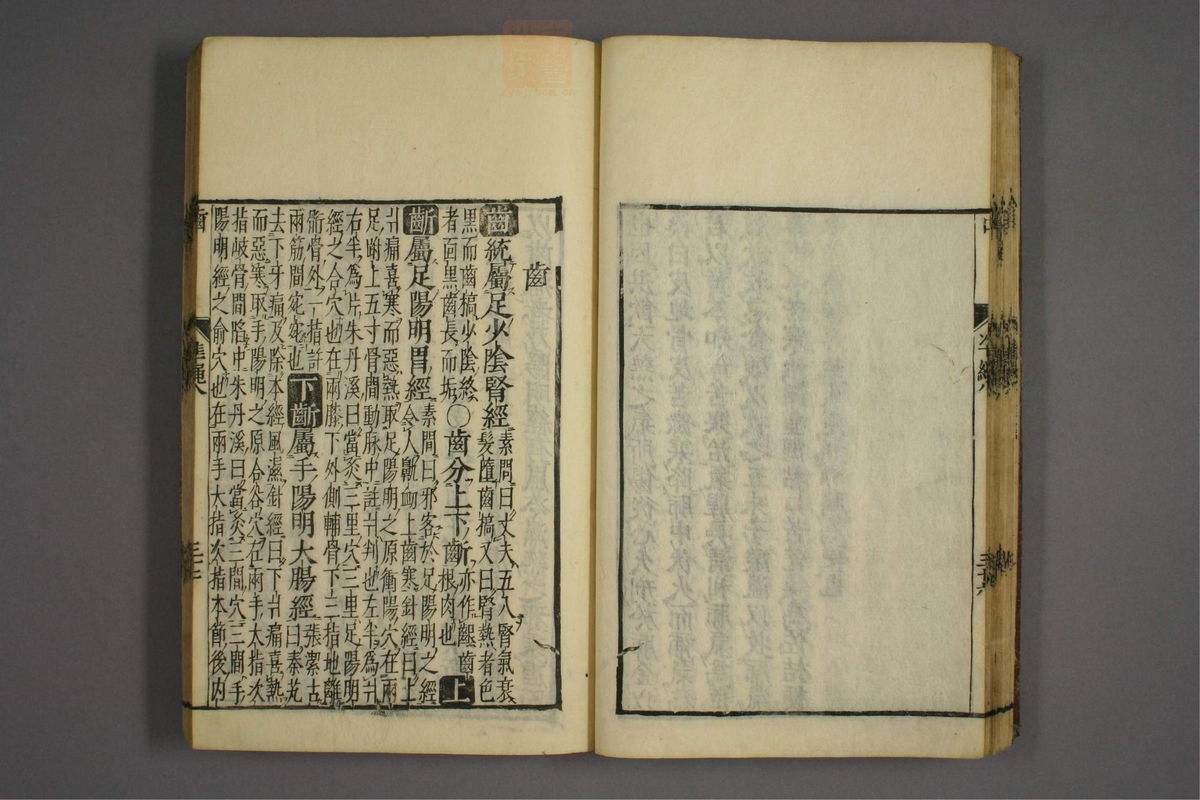 齒
齒統屬足少陰腎經
素問曰丈夫五八腎氣衰
髮墮齒槁又曰腎熱者色
黑而齒槁少陰終
者面黑齒長而垢
○齒分上下齗
亦作齦齒
根肉也
上
齗屬足陽明胃經
素問曰邪客於足陽明之經
令人鼽衄上齒寒針經曰上
爿痛喜寒而惡熱取足陽明之原衝陽穴在兩
足跗上五寸骨間動脉中註爿判也左半為爿
右半為片朱丹溪曰當灸三里穴三里足陽明
經之合穴也在兩膝下外側輔骨下三指地離
䯒骨外一指許
兩筋間宛宛也
下齗屬手陽明大腸經
張潔古
曰秦艽
去下牙痛及除本經風濕針經曰下爿痛喜熱
而惡寒取手陽明之原合谷穴在兩手大指次
指歧骨間陷中朱丹溪曰當灸三間穴三間手
陽明經之俞穴也在兩手大指次指本節後內